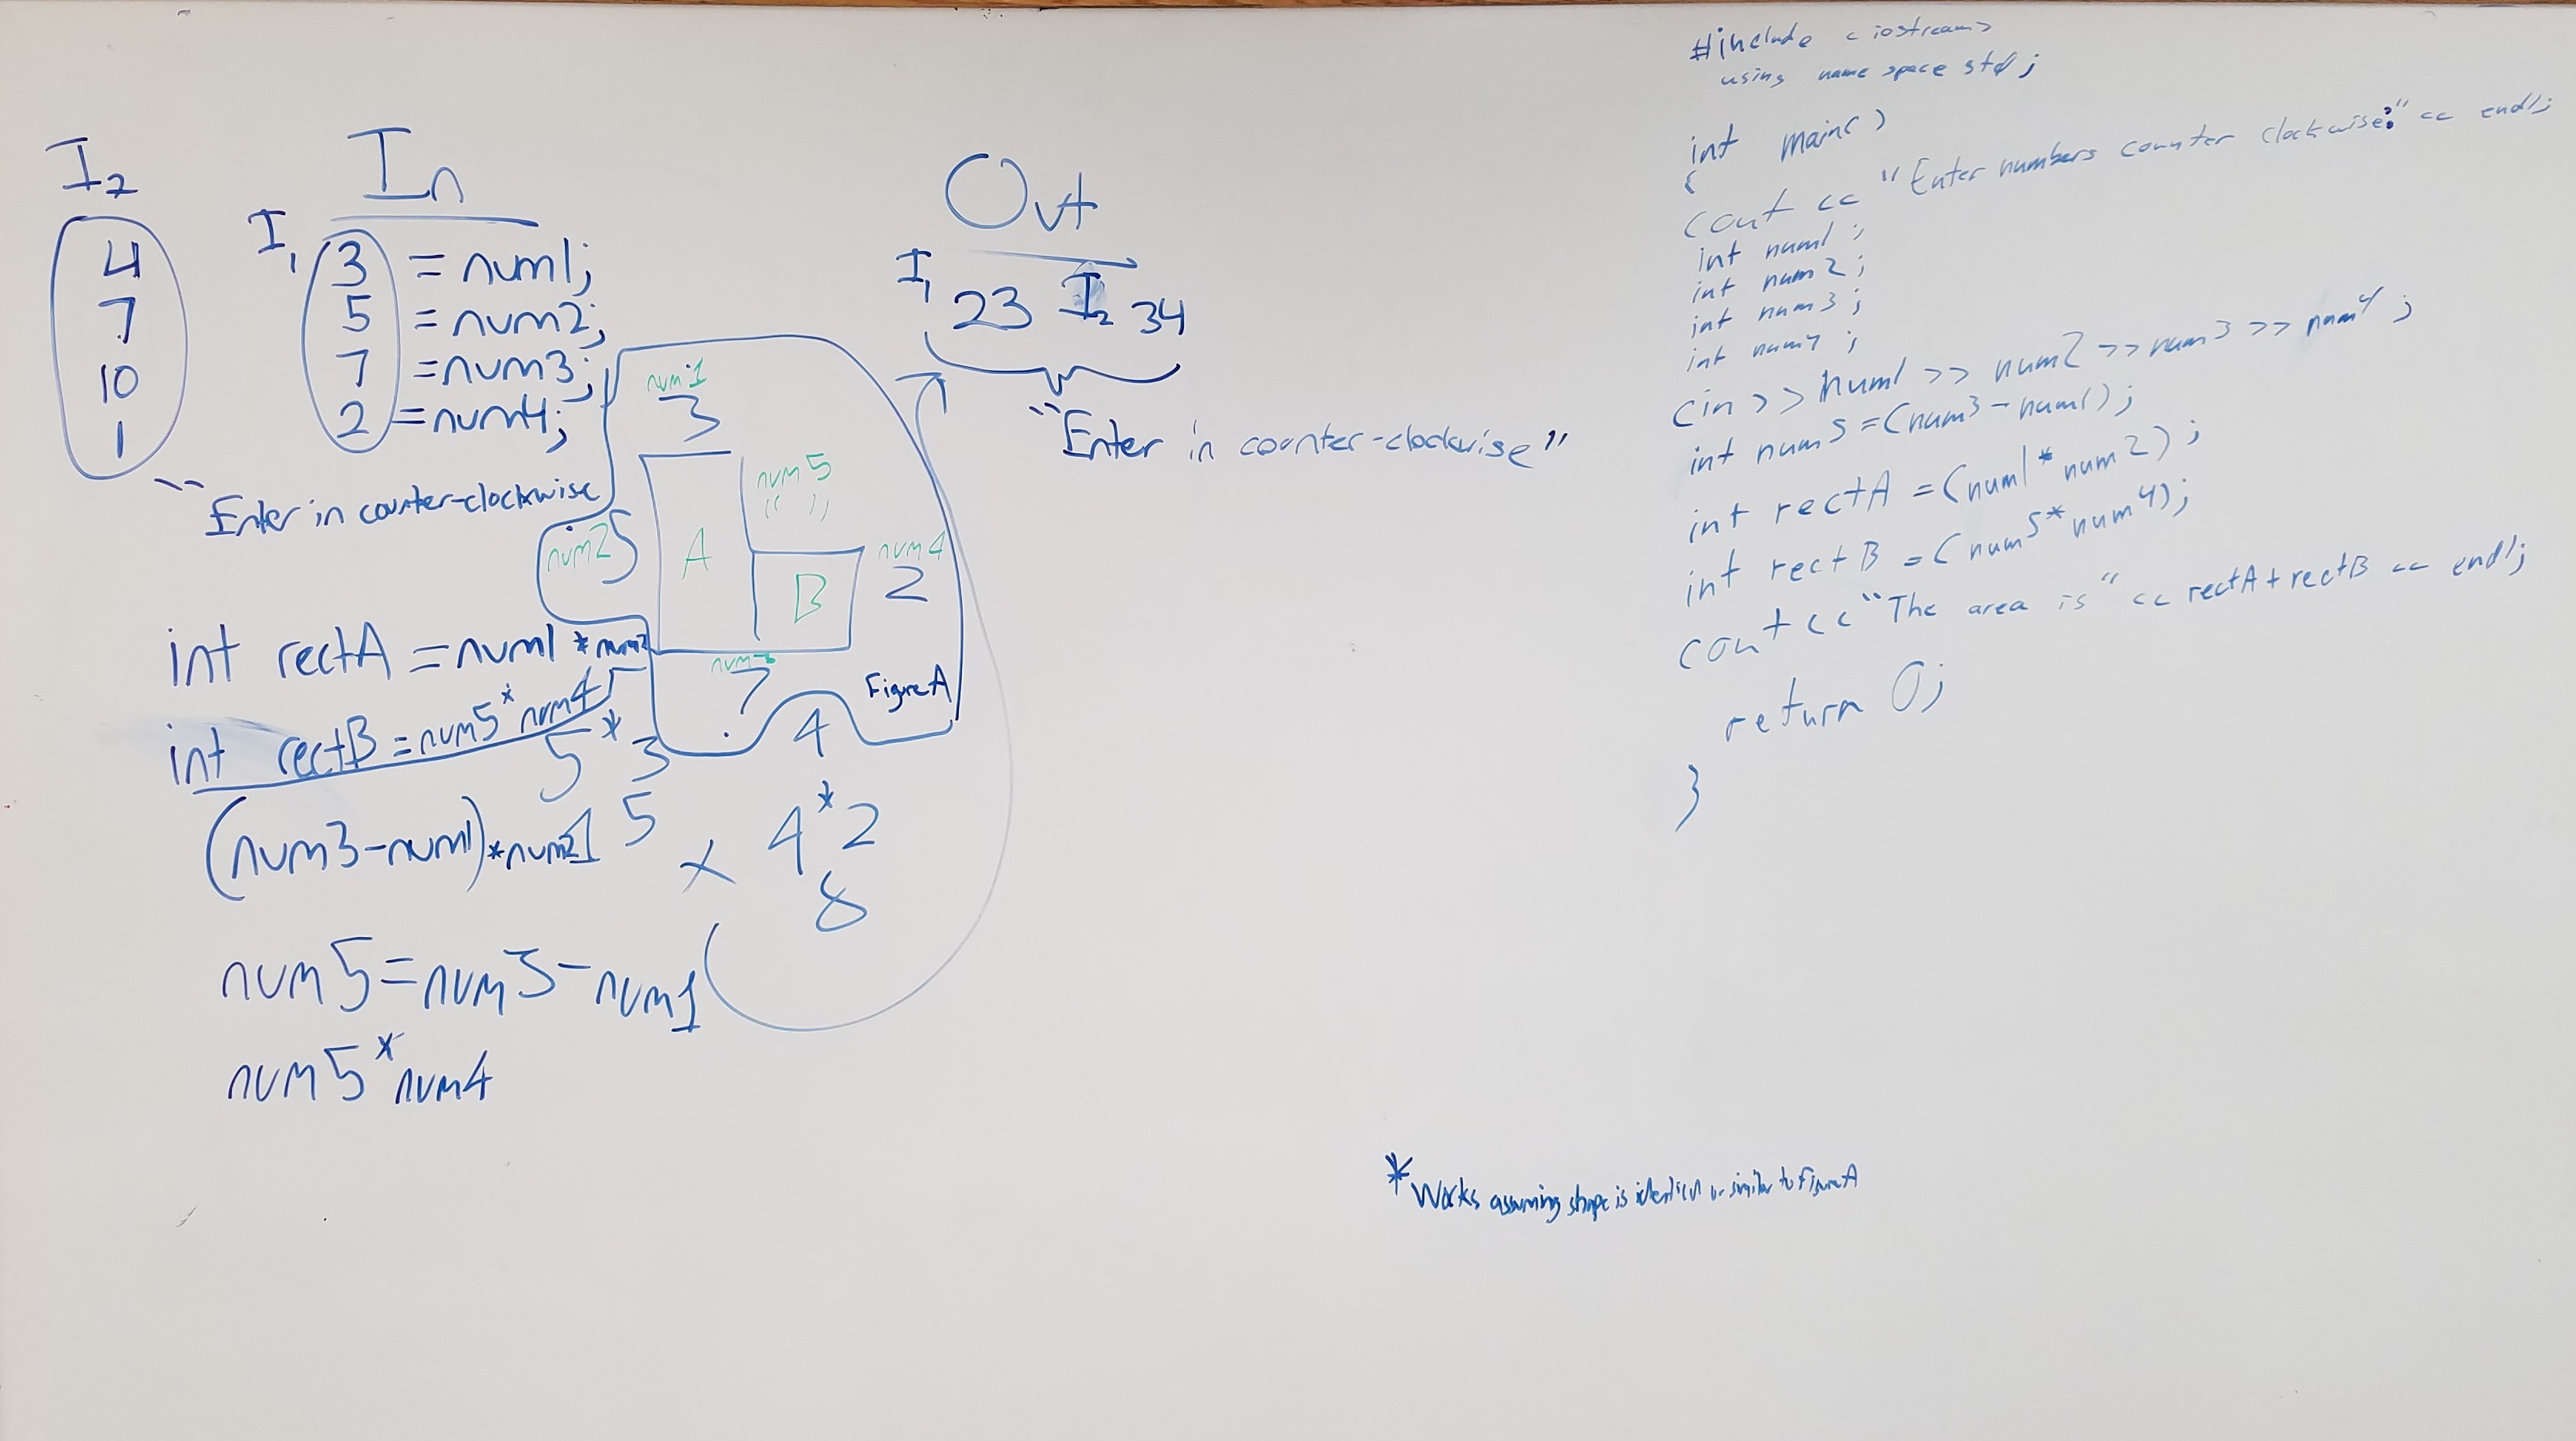 I2
4
7
10
1
In
I1 3 = num1;
5 = num2;
7 = num3;
2 = num4;
"Enter in counter-clockwise
Out
I1 23 I2 34
"Enter in counter-clockwise"
num1
3
num5
" "
num2 5
A
B
num4
2
num3
7
Figure A
4
int rectA = num1 * num2
int rectB = num5 * num4
5 * 3
15
(num3-num1)*num2
x
4*2
8
num5=num3-num1
num5*num4
#include <iostream>
using name space std;
int main()
{
cout << "Enter numbers counter clockwise:" << endl;
int num1;
int num2;
int num3;
int num4;
cin >> num1 >> num2 >> num3 >> num4;
int num5=(num3-num1);
int rectA = (num1*num2);
int rectB = (num5*num4);
cout << "The area is" << rectA+rectB << endl;
return 0;
}
*Works assuming shape is identical or similar to Figure A